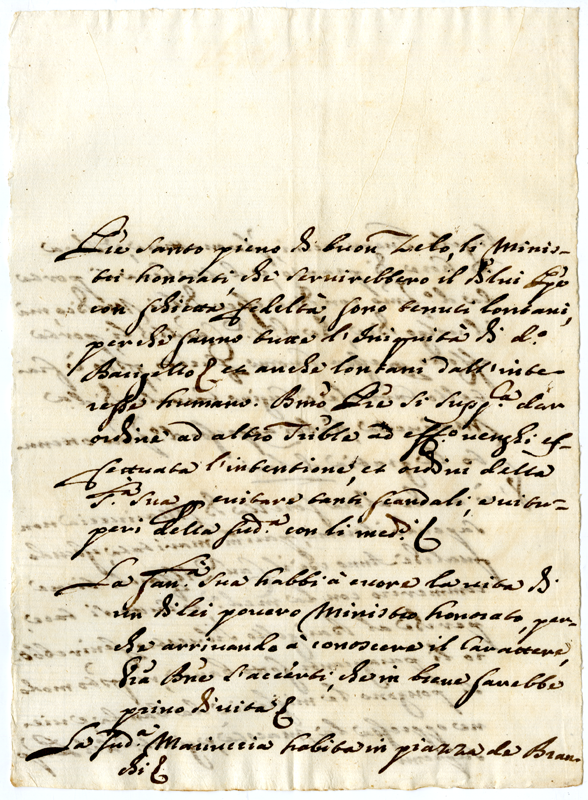 Pre santo pieno di buon Zelo, li Minis-
tri honorati, che servirebbero il di lui Ppe
con schietta fedeltà, sono tenuti lontani,
perche sanno tutte l'Iniquità di d.o
et anche lontani dall'inte-
resse humano. Bmo Pre si supp.ca dar
ordine ad altro Trible ad eff.o venghi ef-
fettuata l'intentione, et ordini della
S.tà Sua p evitare tanti scandali, e vitu-
peri della sud.a con li med.i
La San.tà Sua habbi à cuore la vita di
un di lei povero Ministro honorato, per-
che arrivando à conoscere il Carattere,
Bne s'accerti, che in breve sarebbe
privo di vita
La sud.a Mariuccia habita in piazza de Bran-
chi